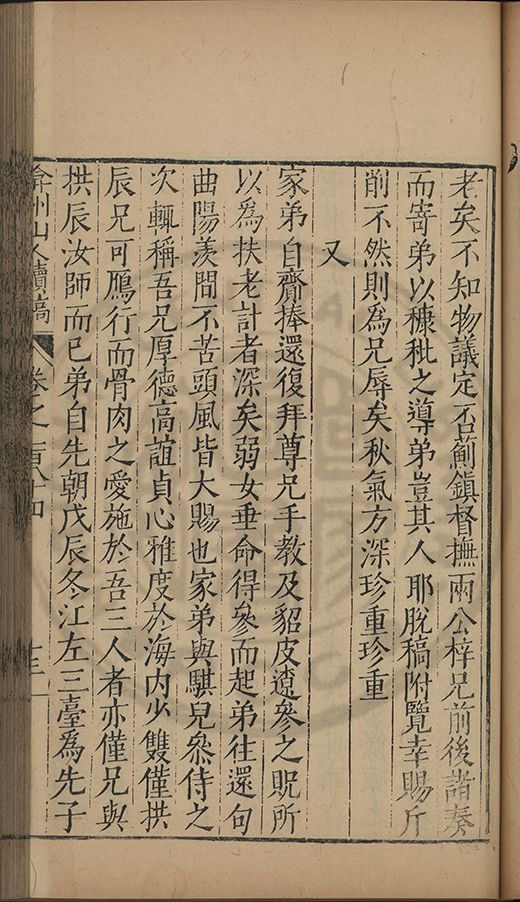 老矣不知物議定否薊鎮督撫兩公梓兄前後諸奏
而寄弟以糠秕之導弟豈其人耶脫稿附覽幸賜斤
削不然則為兄辱矣秋氣方深珍重珍重
又
家弟自齎捧還復拜尊兄手教及貂皮遼參之貺所
以為扶老計者深矣弱女垂命得參而起弟往還句
曲陽羨間不苦頭風皆大賜也家弟與騏兒叅侍之
次輒稱吾兄厚德高誼貞心雅度於海内少雙僅拱
辰兄可鴈行而骨肉之愛施於吾三人者亦僅兄與
拱辰汝師而已弟自先朝戊辰冬江左三臺為先子
弇州山人續稿 卷之一百八十四 十三